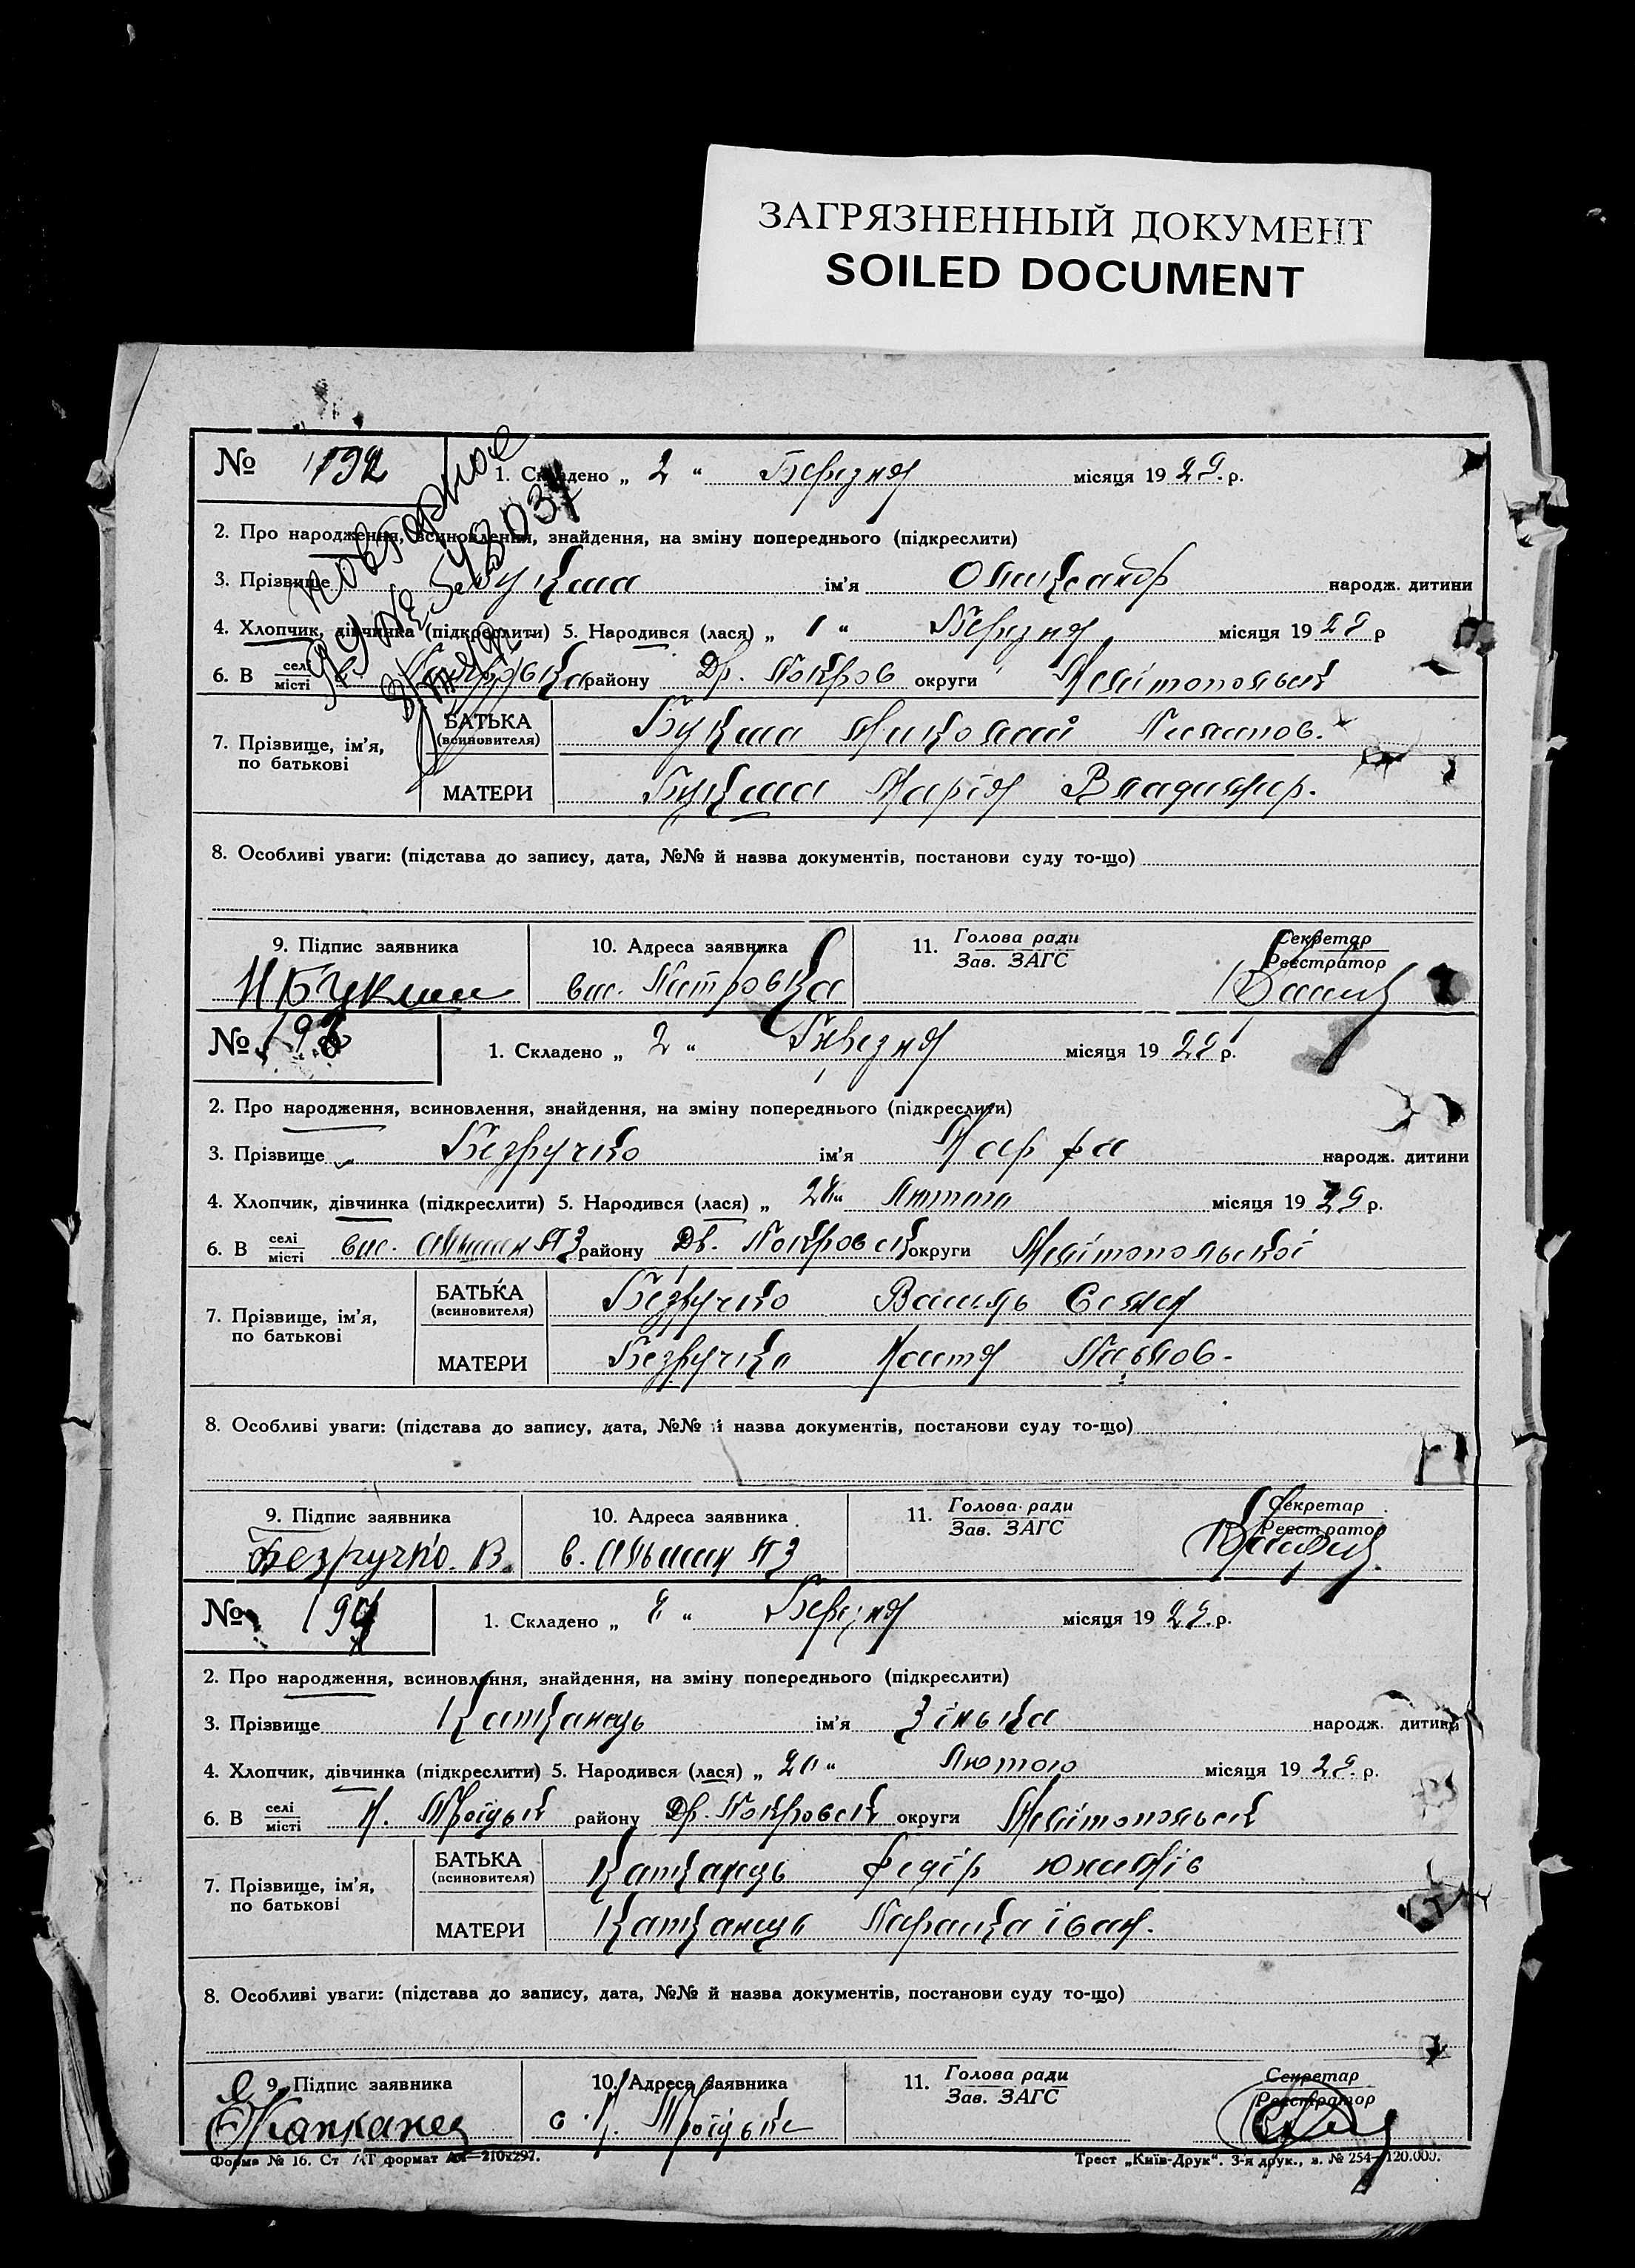 ЗАГРЯЗНЕННЫЙ ДОКУМЕНТ
SOILED DOCUMENT
№ 192
1. Складено „ 2 “ Березня місяця 19 29. р.
повторное
2. Про народження, всиновлення, знайдення, на зміну попереднього (підкреслити)
3. Прізвище Букша ім'я Олександр народж. дитини
4. Хлопчик, дівчинка (підкреслити) 5. Народився (лася) „ 1 “ Березня місяця 19 29 р
6. В селі/місті району Др. Покров округи Мелітопольськ
7. Прізвище, ім'я, по батькові
БАТЬКА (всиновителя) Букша Миколай
МАТЕРИ Букша Марія Владимир.
8. Особливі уваги: (підстава до запису, дата, №№ й назва документів, постанови суду то-що)
9. Підпис заявника
10. Адреса заявника
11. Голова ради
Зав. ЗАГС
Секретар
Реєстратор
Н Букша
вис. Петровка
№ 193
1. Складено „ 2 “ Березня місяця 19 29 р.
2. Про народження, всиновлення, знайдення, на зміну попереднього (підкреслити)
3. Прізвище Безручко ім'я Марфа народж. дитини
4. Хлопчик, дівчинка (підкреслити) 5. Народився (лася) „ Лютого місяця 19 29 р.
6. В селі/місті вис. району Дв. Покровськ округи Мелітопольської
7. Прізвище, ім'я, по батькові
БАТЬКА (всиновителя) Безручко Василь Семен
МАТЕРИ Безручко Павлов.
8. Особливі уваги: (підстава до запису, дата, №№ й назва документів, постанови суду то-що)
9. Підпис заявника
10. Адреса заявника
11. Голова ради
Зав. ЗАГС
Секретар
Реєстратор
Безручко. В.
№ 194
1. Складено „ “ Березня місяця 19 29. р.
2. Про народження, всиновлення, знайдення, на зміну попереднього (підкреслити)
3. Прізвище Капканець ім'я Зінька народж. дитини
4. Хлопчик, дівчинка (підкреслити) 5. Народився (лася) „ “ Лютого місяця 19 29. р.
6. В селі/місті Н. Троїцьк району Др. Покровськ округи Мелітопольськ
7. Прізвище, ім'я, по батькові
БАТЬКА (всиновителя) Капканець Федір Юхимів
МАТЕРИ Капканець Параска Іван.
8. Особливі уваги: (підстава до запису, дата, №№ й назва документів, постанови суду то-що)
9. Підпис заявника
10. Адреса заявника
11. Голова ради
Зав. ЗАГС
Секретар
Реєстратор
Капканец
с. Н. Троїцьке
Форма № 16. Ст формат А4—210х297.
Трест „Київ-Друк“. 3-я друк., з. № 254—120.000.